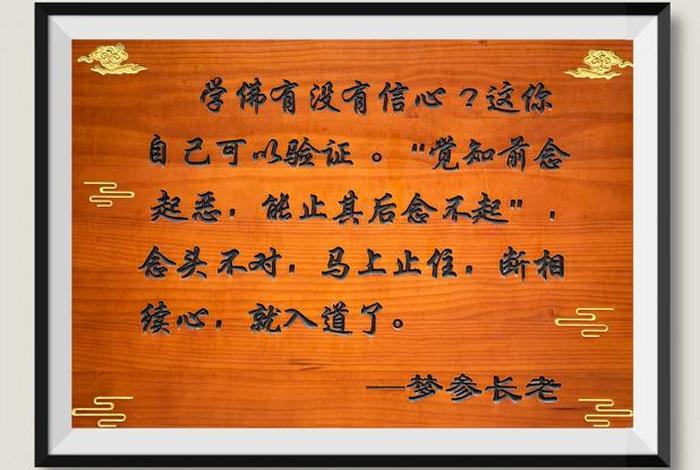 学佛有没有信心？这你
自己可以验证。"觉知前念
起恶，能止其后念不起"，
念头不对，马上止住，断相
续心，就入道了。
—梦参长老